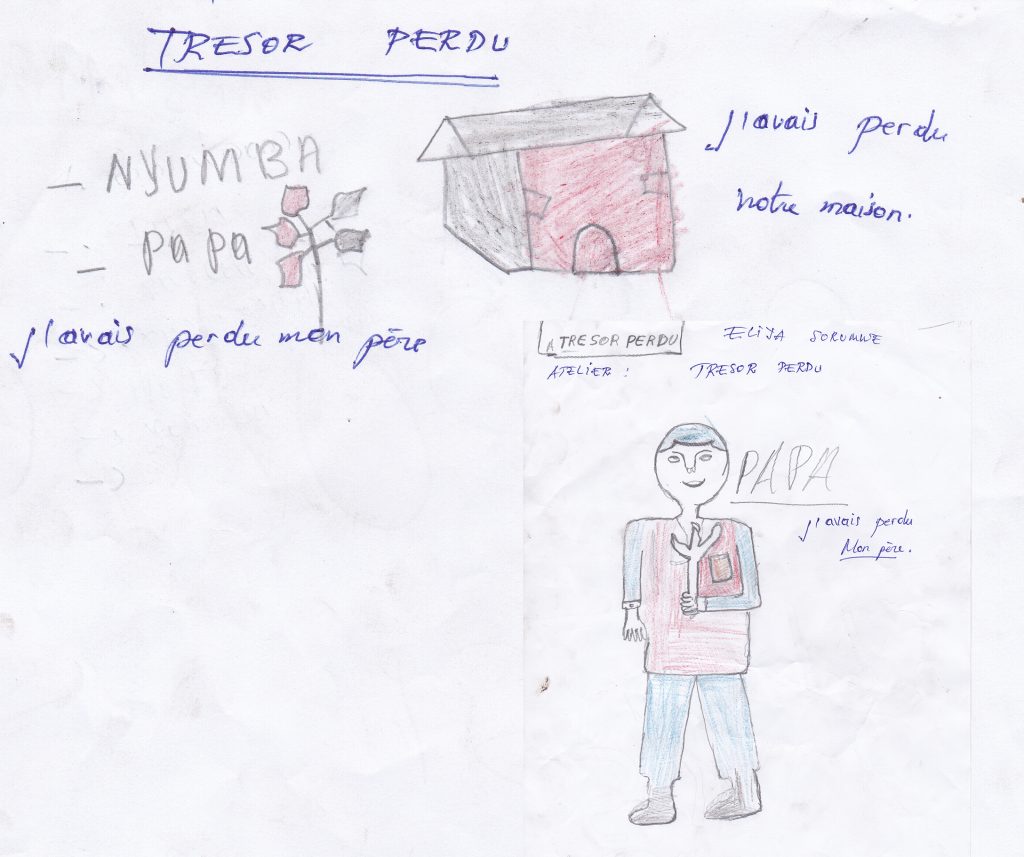 TRESOR PERDU
- NYUMBA
- PAPA
J'avais perdu
notre maison.
J'avais perdu mon père
A TRESOR PERDU
ELIJA SORUMWE
ATELIER : TRESOR PERDU
PAPA
J'avais perdu
Mon père.